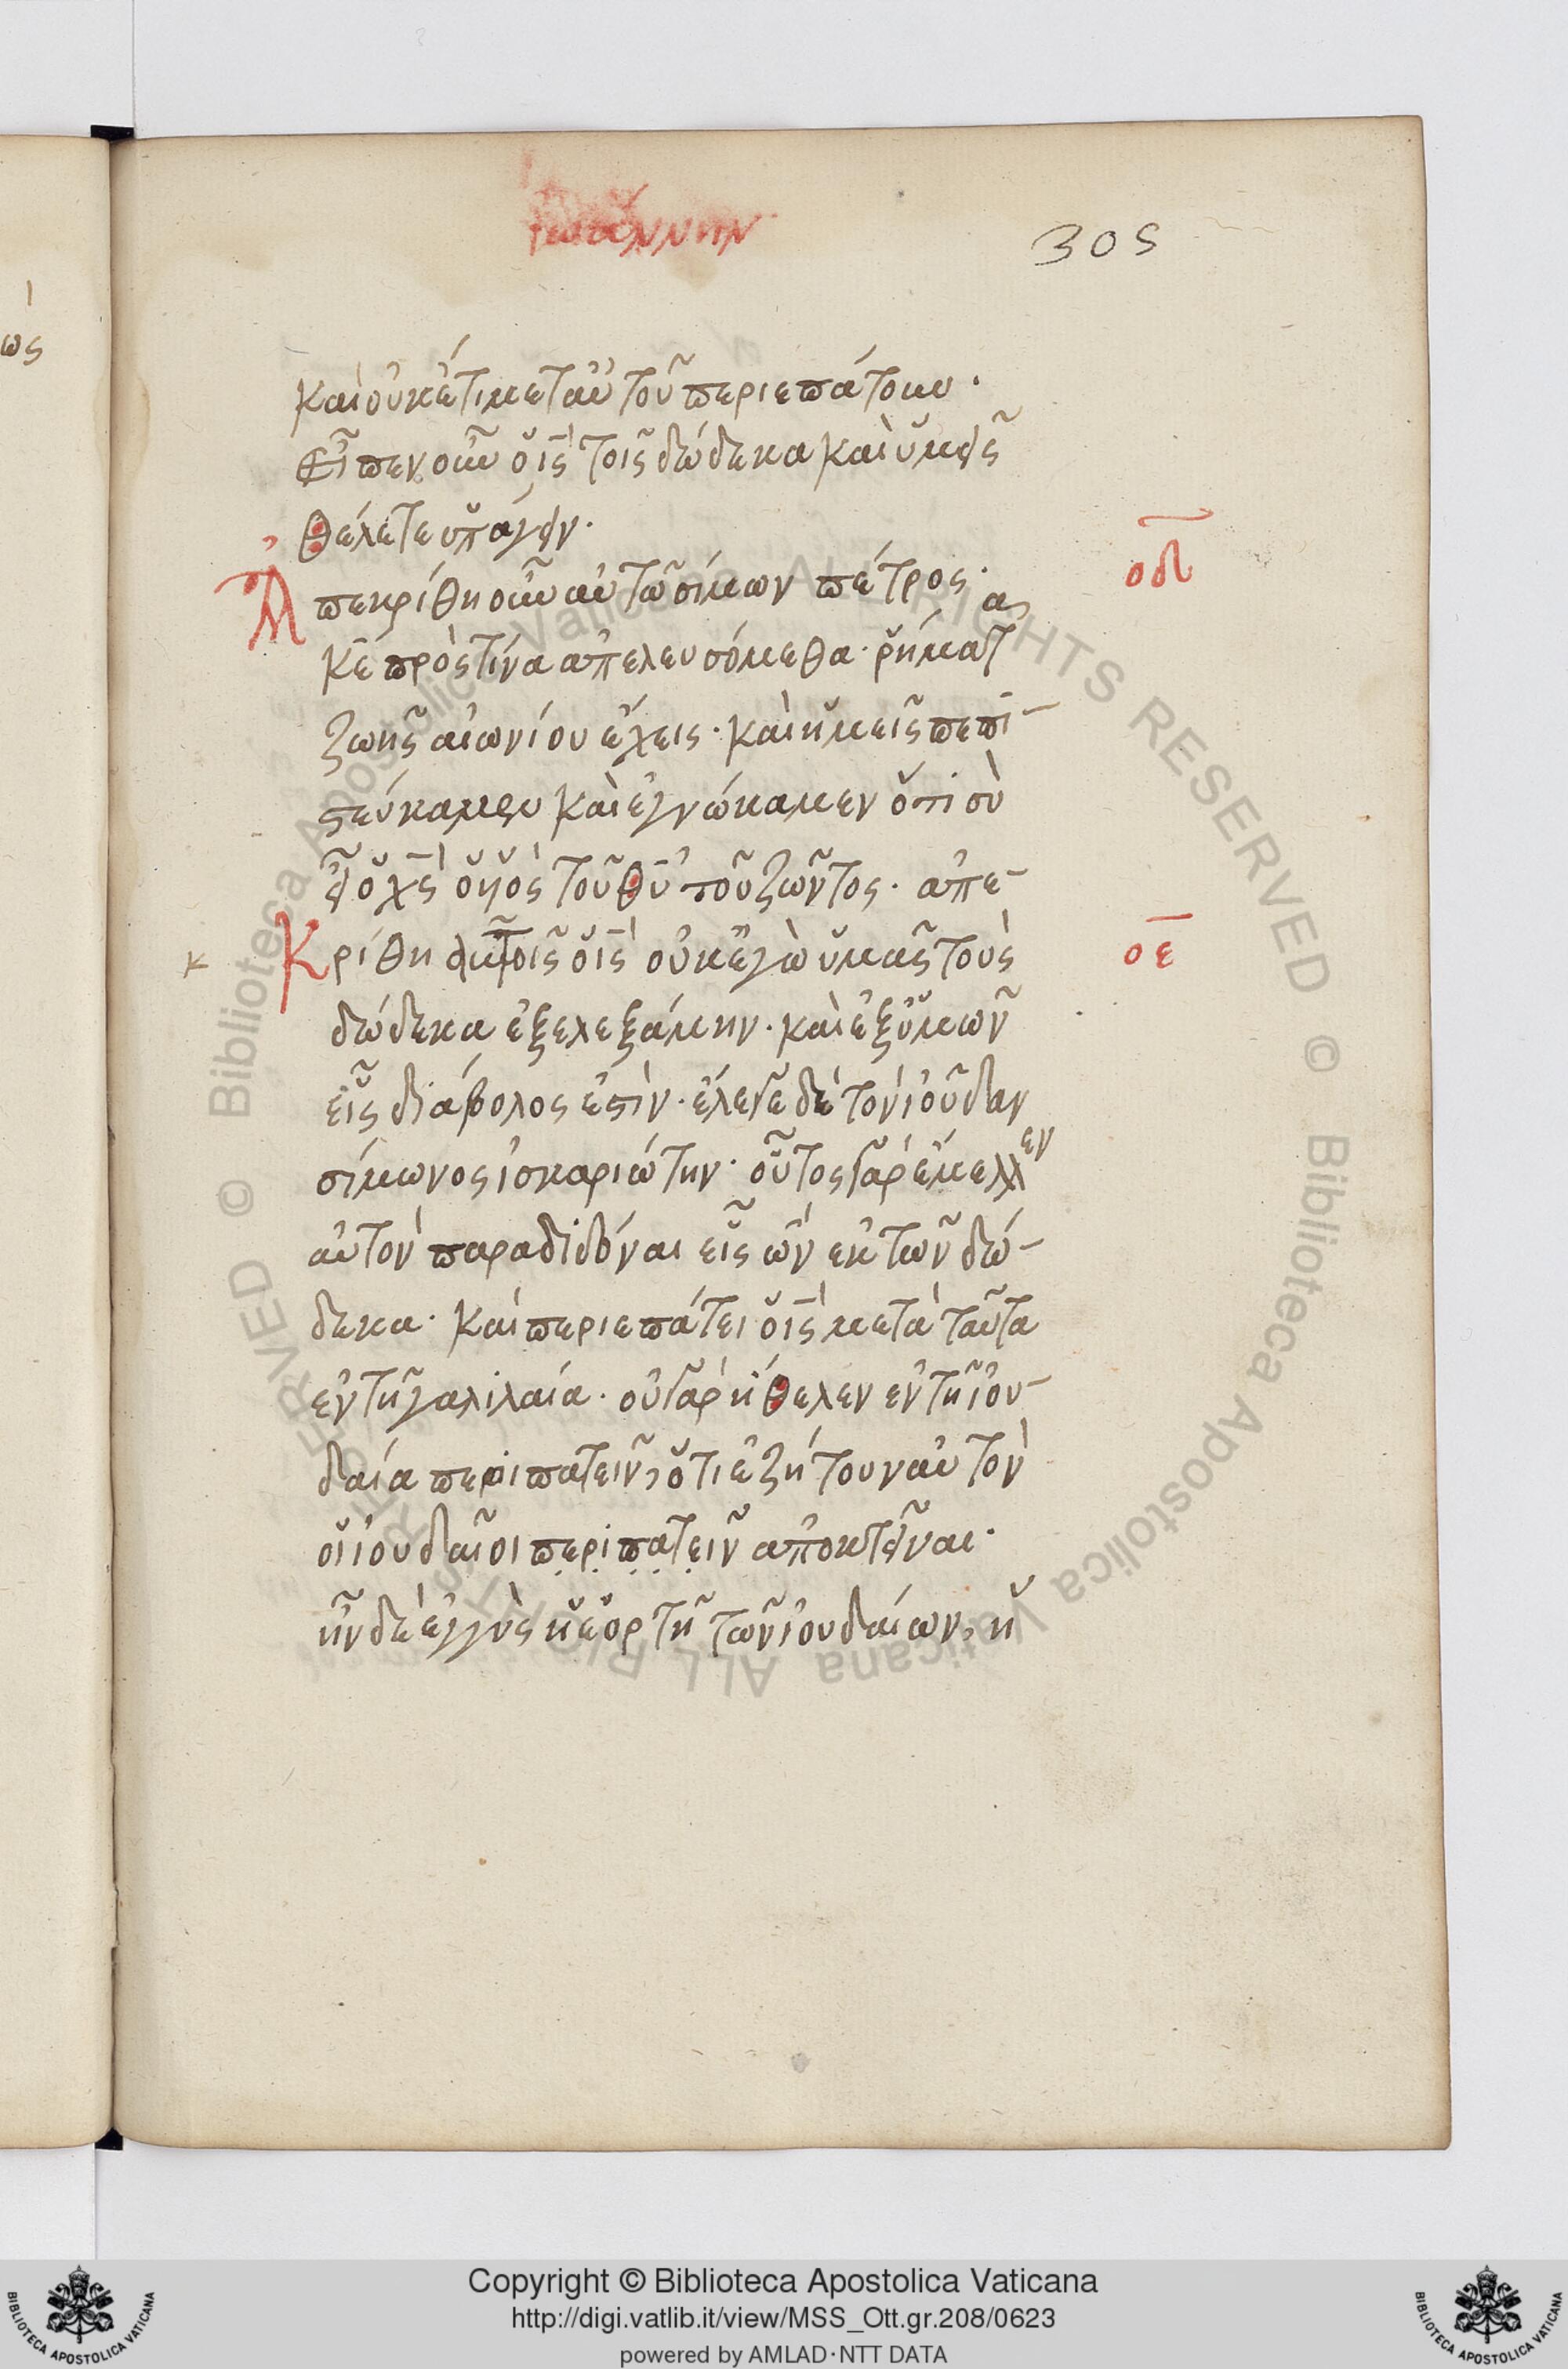 ἰωάννην
305
ως
καὶ οὐκέτι μετ αὐτοῦ περιεπάτουν.
Εἶπεν οὖν ὁ ις τοῖς δώδεκα καὶ ὑμεῖς
θέλετε ὑπάγειν.
Ἀπεκρίθη οὖν αὐτῶ σίμων πέτρος.
οδ
κε πρὸς τίνα ἀπελευσόμεθα. ῥήματ
ζωῆς αἰωνίου ἔχεις. καὶ ἡμεῖς πεπι-
στεύκαμεν καὶ ἐγνώκαμεν ὅτι σὺ
εἶ ὁ χς ὁ υἱὸς τοῦ θυ τοῦ ζῶντος. ἀπε-
κ Κρίθη αὐτοῖς ὁ ις οὐκ ἐγὼ ὑμᾶς τοὺς
οε
δώδεκα ἐξελεξάμην. καὶ ἐξ ὑμῶν
εἷς διάβολος ἐστὶν. ἔλεγε δὲ τὸν ἰοῦδαν
σίμωνος ἰσκαριώτην. οὗτος γὰρ ἔμελλεν
αὐτὸν παραδιδόναι εἷς ὢν ἐκ τῶν δώ-
δεκα. καὶ περιεπάτει ὁ ις μετὰ ταῦτα
ἐν τῆ γαλιλαία. οὐ γὰρ ἤθελεν ἐν τῆ ἰου-
δαία περιπατεῖν, ὅτι ἐζήτουν αὐτὸν
οἱ ἰουδαῖοι περιπατεῖν ἀποκτεῖναι.
ἦν δὲ ἐγγὺς ἡ ἑορτῆ τῶν ἰουδαίων, ἡ
© Biblioteca Apostolica Vaticana ALL RIGHTS RESERVED © Biblioteca Apostolica Vaticana ALL RIGHTS RESERVED
Copyright © Biblioteca Apostolica Vaticana
http://digi.vatlib.it/view/MSS_Ott.gr.208/0623
powered by AMLAD·NTT DATA
BIBLIOTECA APOSTOLICA VATICANA
BIBLIOTECA APOSTOLICA VATICANA